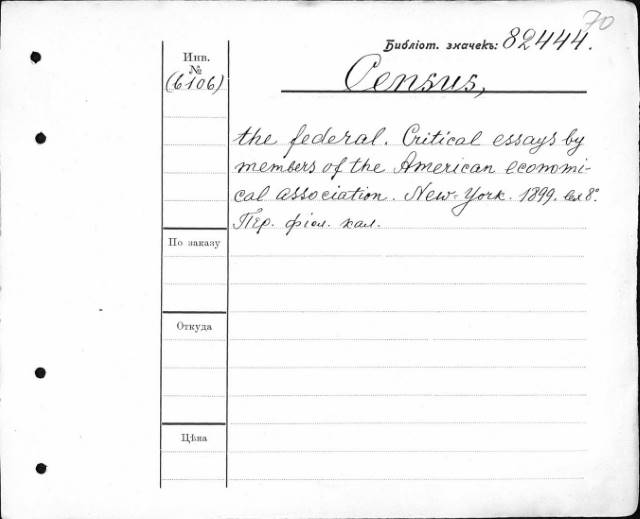 70
Библіот. значекъ: 82444.
Инв.
№
(6106)
Census,
the federal. Critical essays by
members of the American economi-
cal association. New-York. 1899. 8°.
Пер. фіол. кал.
По заказу
Откуда
Цѣна